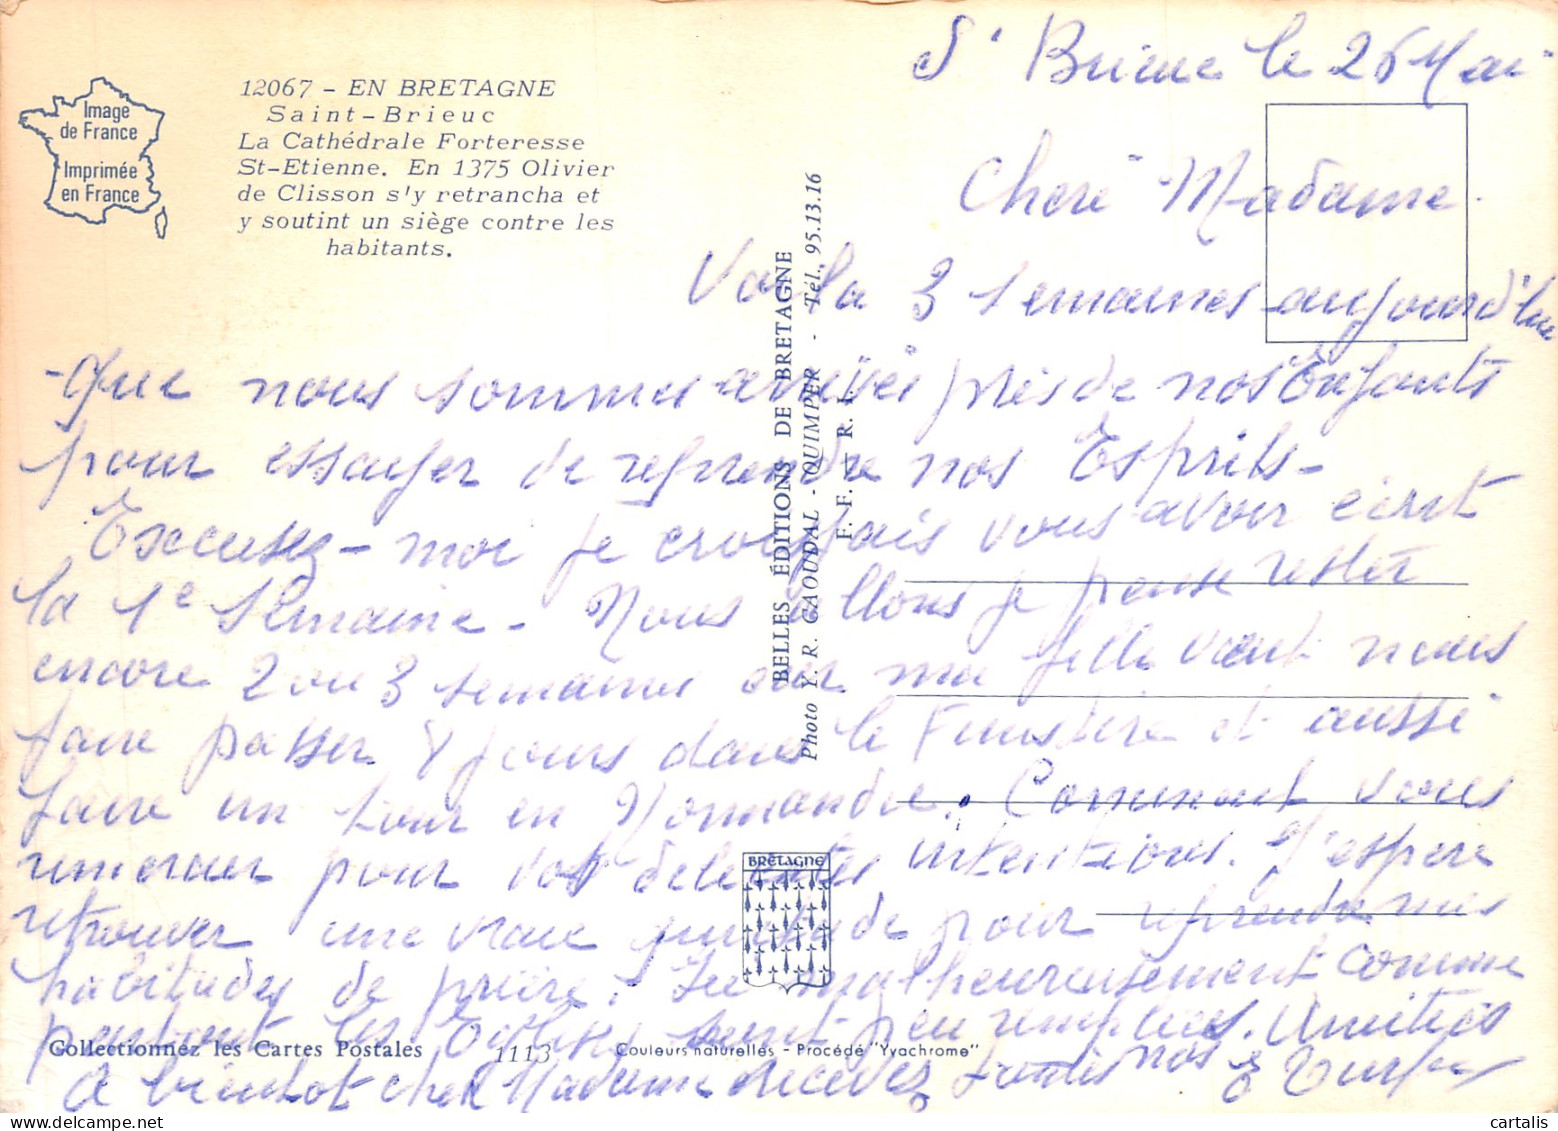 Image
de France
Imprimée
en France
12067 - EN BRETAGNE
Saint-Brieuc
La Cathédrale Forteresse
St-Etienne. En 1375 Olivier
de Clisson s'y retrancha et
y soutint un siège contre les
habitants.
St Brieuc le 26 Mai
Chère Madame.
Voila 3 semaines aujourd'hui
que nous sommes arrivés près de nos Enfants
pour essayer de reprendre nos Esprits-
Excusez-moi je croyais vous avoir écrit
la 1e semaine - Nous allons je pense rester
encore 2 ou 3 semaines car ma fille veut nous
faire passer 8 jours dans le Finistère et aussi
faire un tour en Normandie. Comment vous
remercier pour vos délicates intentions. J'espère
retrouver une vraie quiétude pour reprendre mes
habitudes de prière. Ici malheureusement comme
partout les Eglises sont peu remplies. Amitiés
A bientôt chère Madame recevez toutes nos
BELLES ÉDITIONS DE BRETAGNE
Photo Y. R. CAOUDAL - QUIMPER - Tél. 95.13.16
F. F. - R. I.
BRETAGNE
Collectionnez les Cartes Postales
1113
Couleurs naturelles - Procédé "Yvachrome"
cartalis